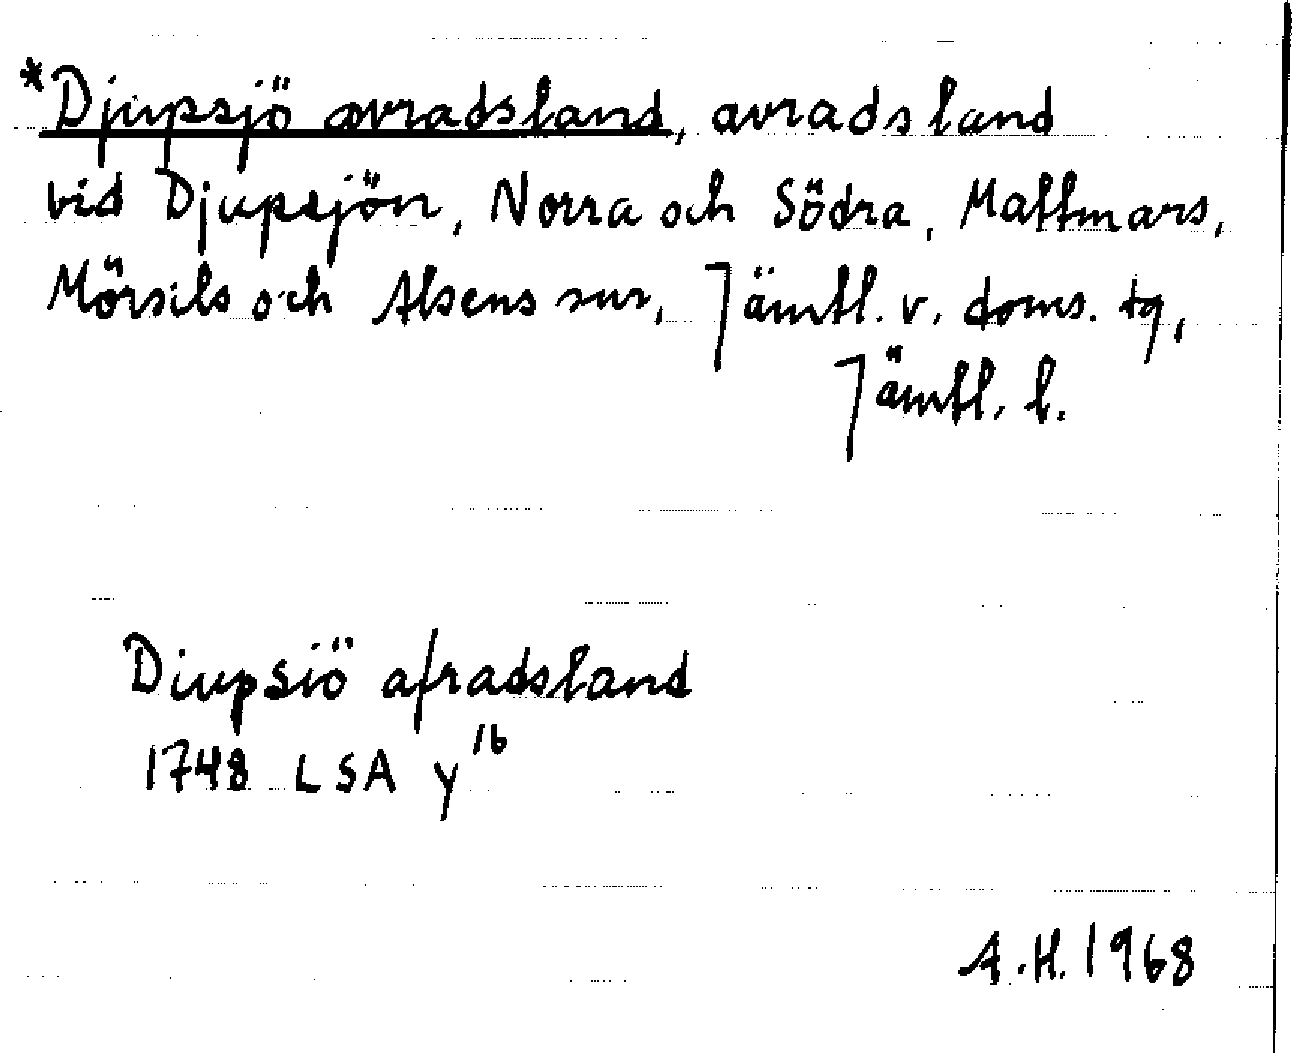 *Djupsjö avradsland, avradsland
vid Djupsjön, Norra och Södra, Mattmars,
Mörsils och Alsens snr, Jämtl. v. doms. tg,
Jämtl. l.
Diupsiö afradsland
1748 LSA y16
A.H. 1968